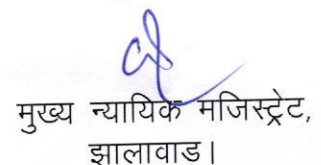 मुख्य न्यायिक मजिस्ट्रेट,
झालावाड।